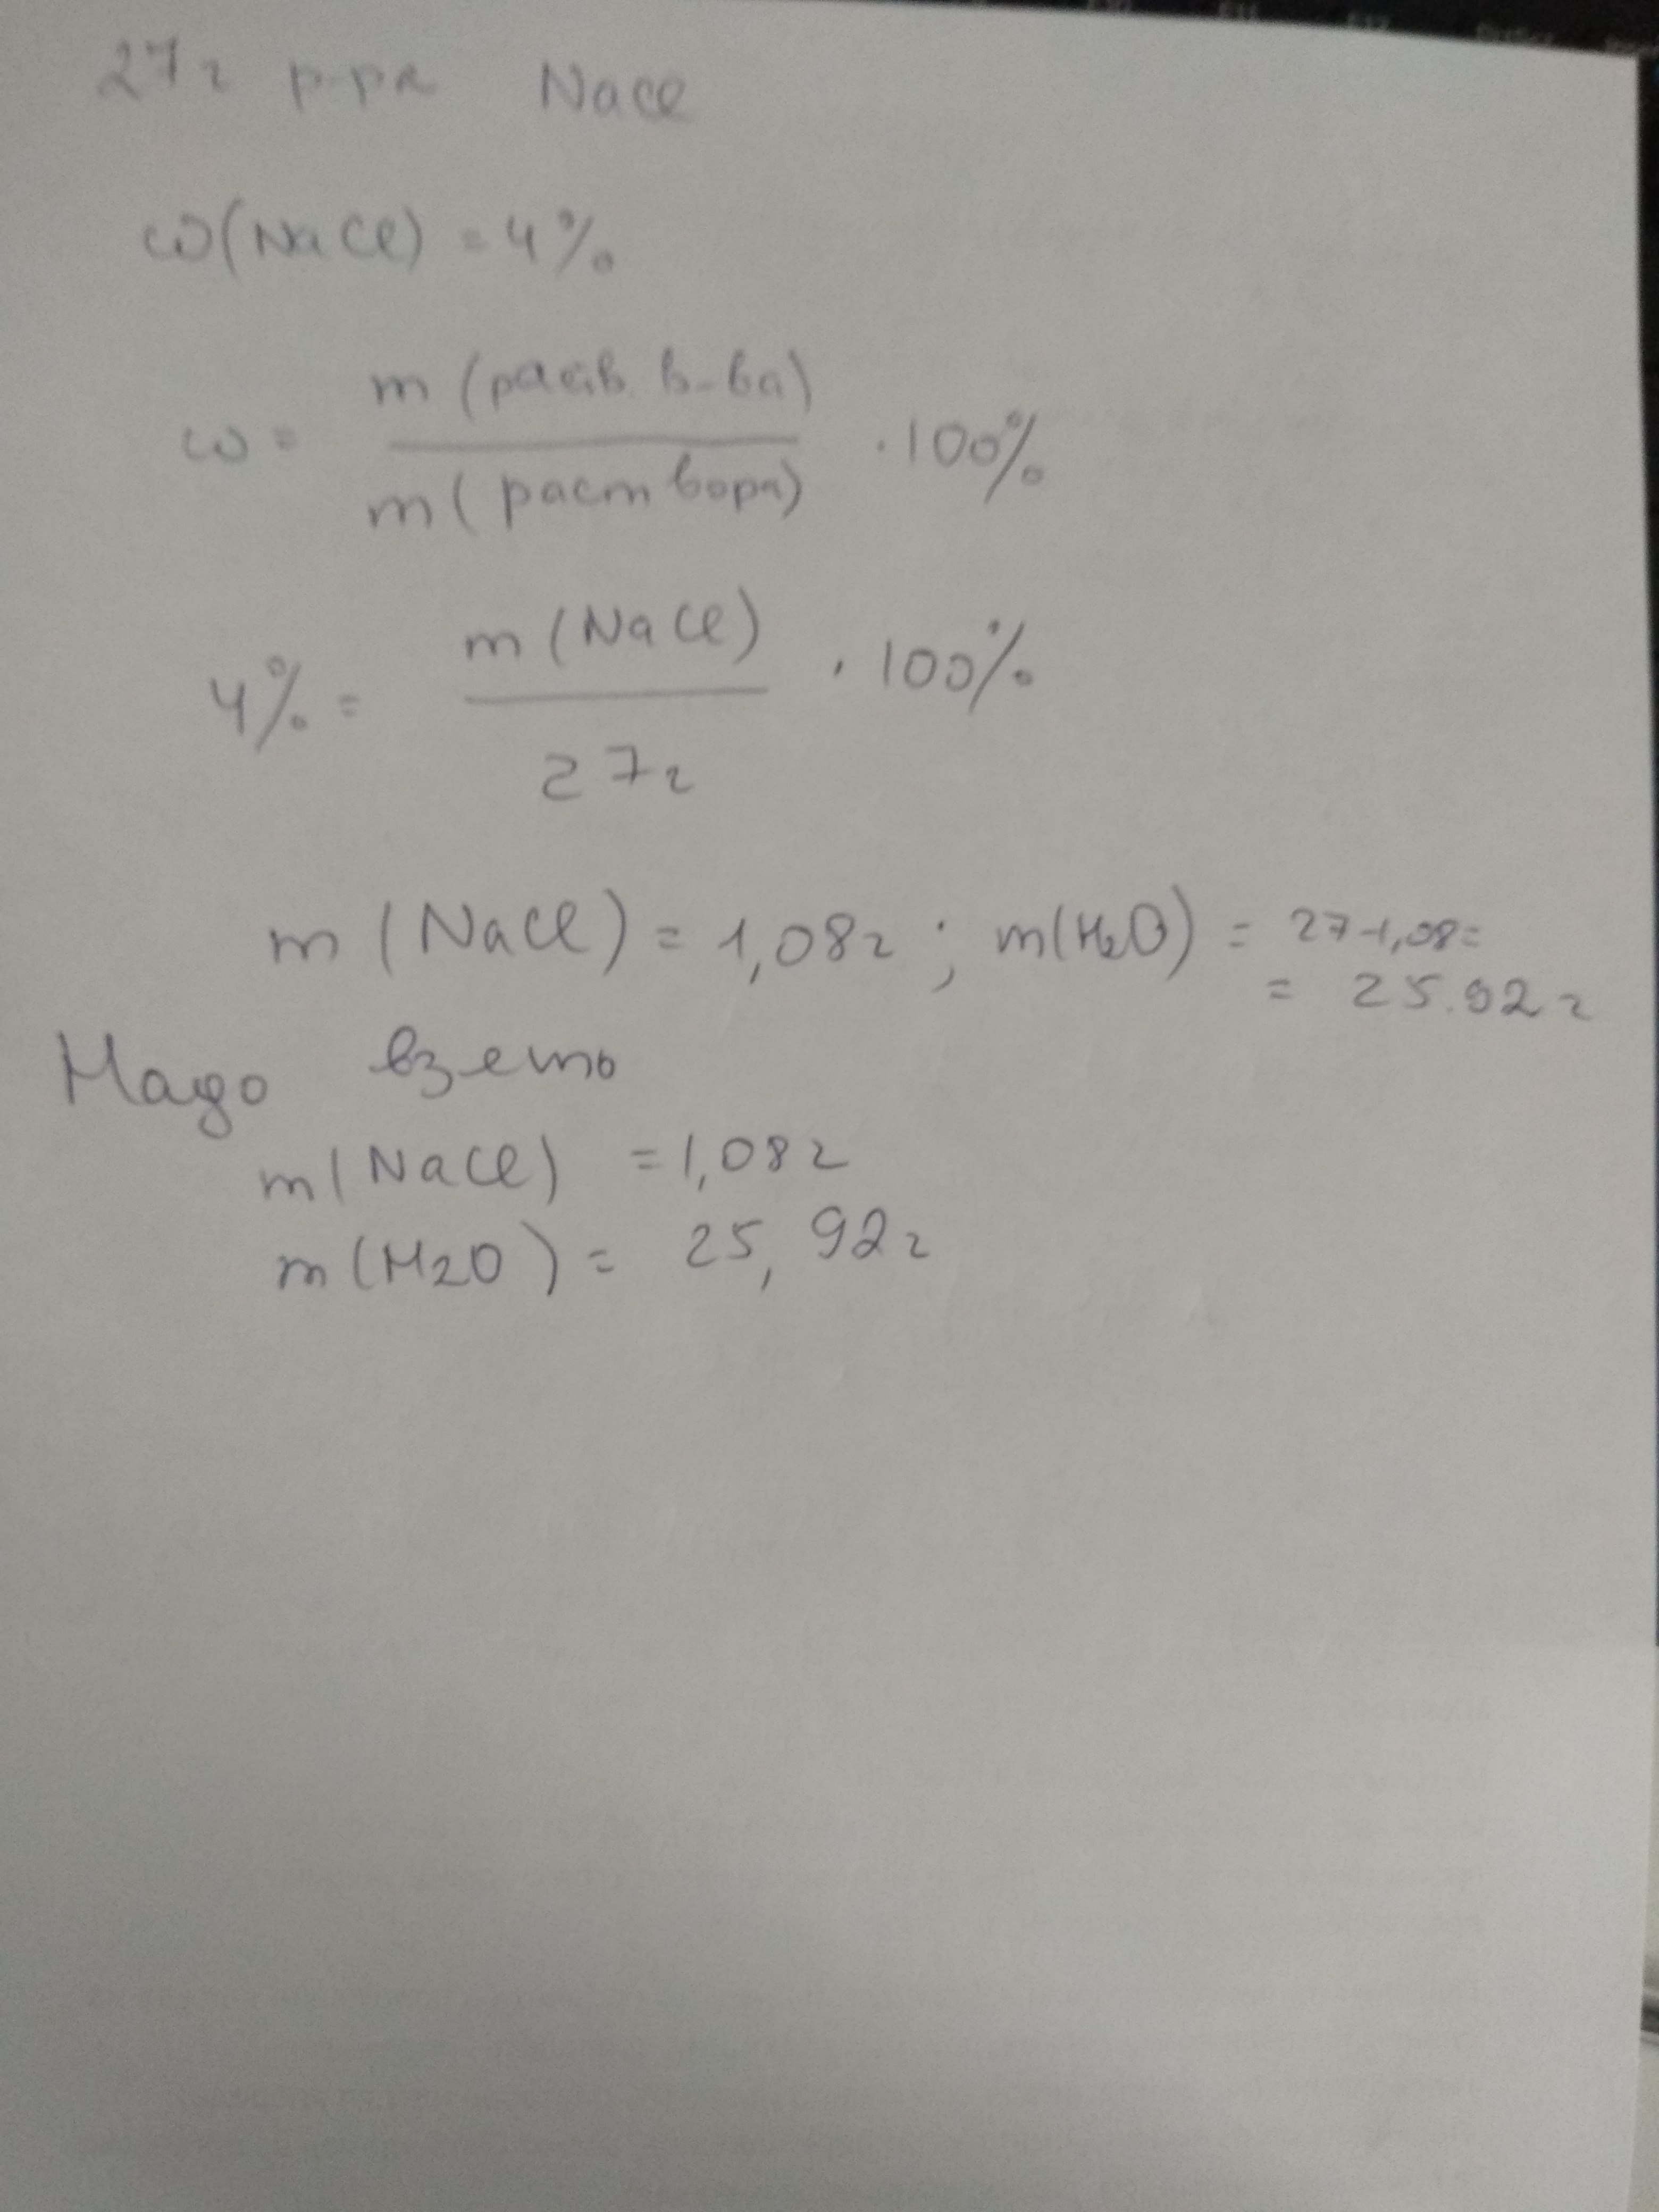 27г р-ра NaCl
ω(NaCl) = 4%
ω = m(раств. в-ва) / m(раствора) · 100%
4% = m(NaCl) / 27г · 100%
m(NaCl) = 1,08г ; m(H₂O) = 27-1,08=
= 25.92г
Надо взеть
m(NaCl) = 1,08г
m(H2O) = 25,92г